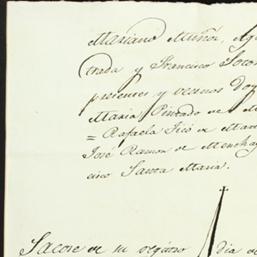 Mariano Muñoz, Ag
trada y Francisco Socor
presentes y vecinos Do
Maria Pintado de M
= Rafaela Ficó de Mar
José Ramon de Menchac
cisco Santa Maria.
Sacose de su registro dia de